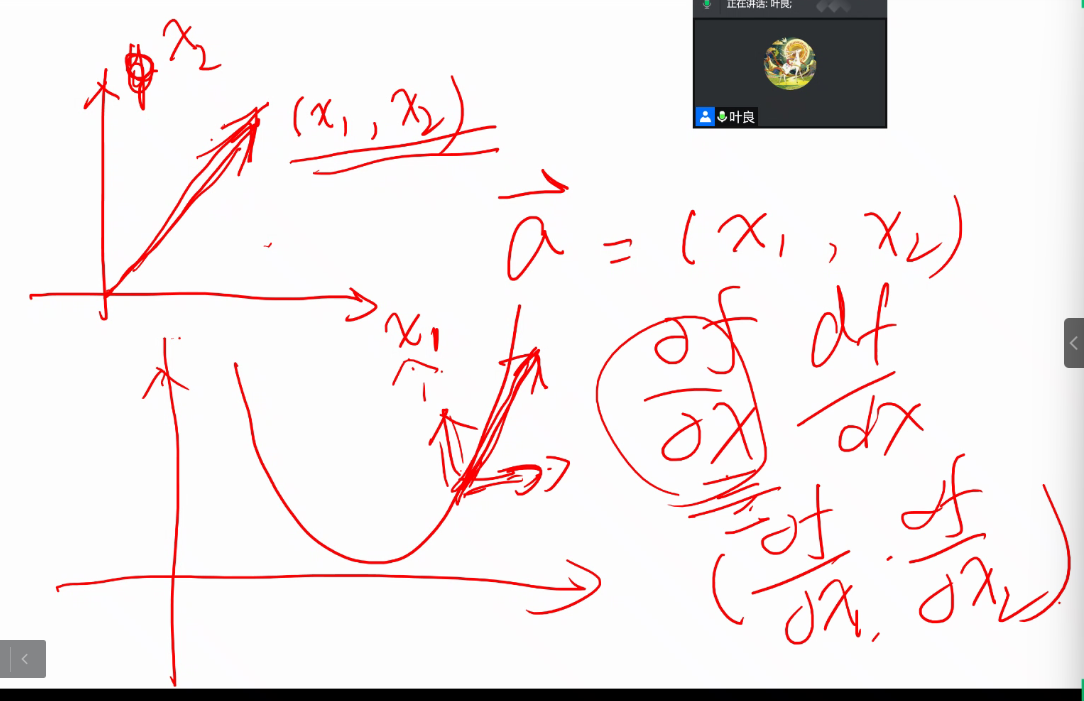 正在讲话: 叶良;
叶良
x₂
(x₁, x₂)
a⃗ = (x₁, x₂)
x₁
∂f/∂x df/dx
(∂f/∂x₁, ∂f/∂x₂)